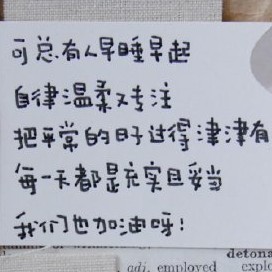 可总有人早睡早起
自律温柔又专注
把平常的日子过得津津有
每一天都是充实且妥当
我们也加油呀!
detona
adj. employed explo